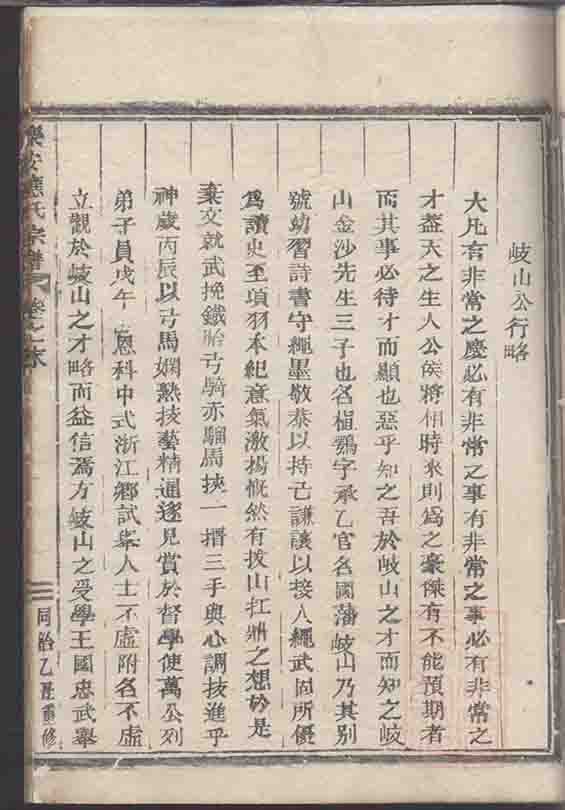 岐山公行略
大凡有非常之慶必有非常之事有非常之事必有非常之
才葢天之生人公侯將相時來則爲之豪傑有不能預期者
而其事必待才而顯也惡乎知之吾於岐山之才而知之岐
山金沙先生三子也名植鶚字承乙官名國藩岐山乃其别
號幼習詩書守繩墨敬恭以持己謙讓以接人繩武固所優
爲讀史至項羽本紀意氣激揚慨然有拔山扛鼎之想於是
棄文就武挽鐵胎弓騎赤騮馬挾一搢三手與心調技進乎
神歲丙辰以弓馬嫻熟技藝精通遂見賞於督學使萬公列
弟子員戊午 恩科中式浙江鄉試舉人士不虛附名不虛
立觀於岐山之才略而益信焉方岐山之受學王國忠武舉
樂安應氏宗譜 卷之末
同治乙丑重修